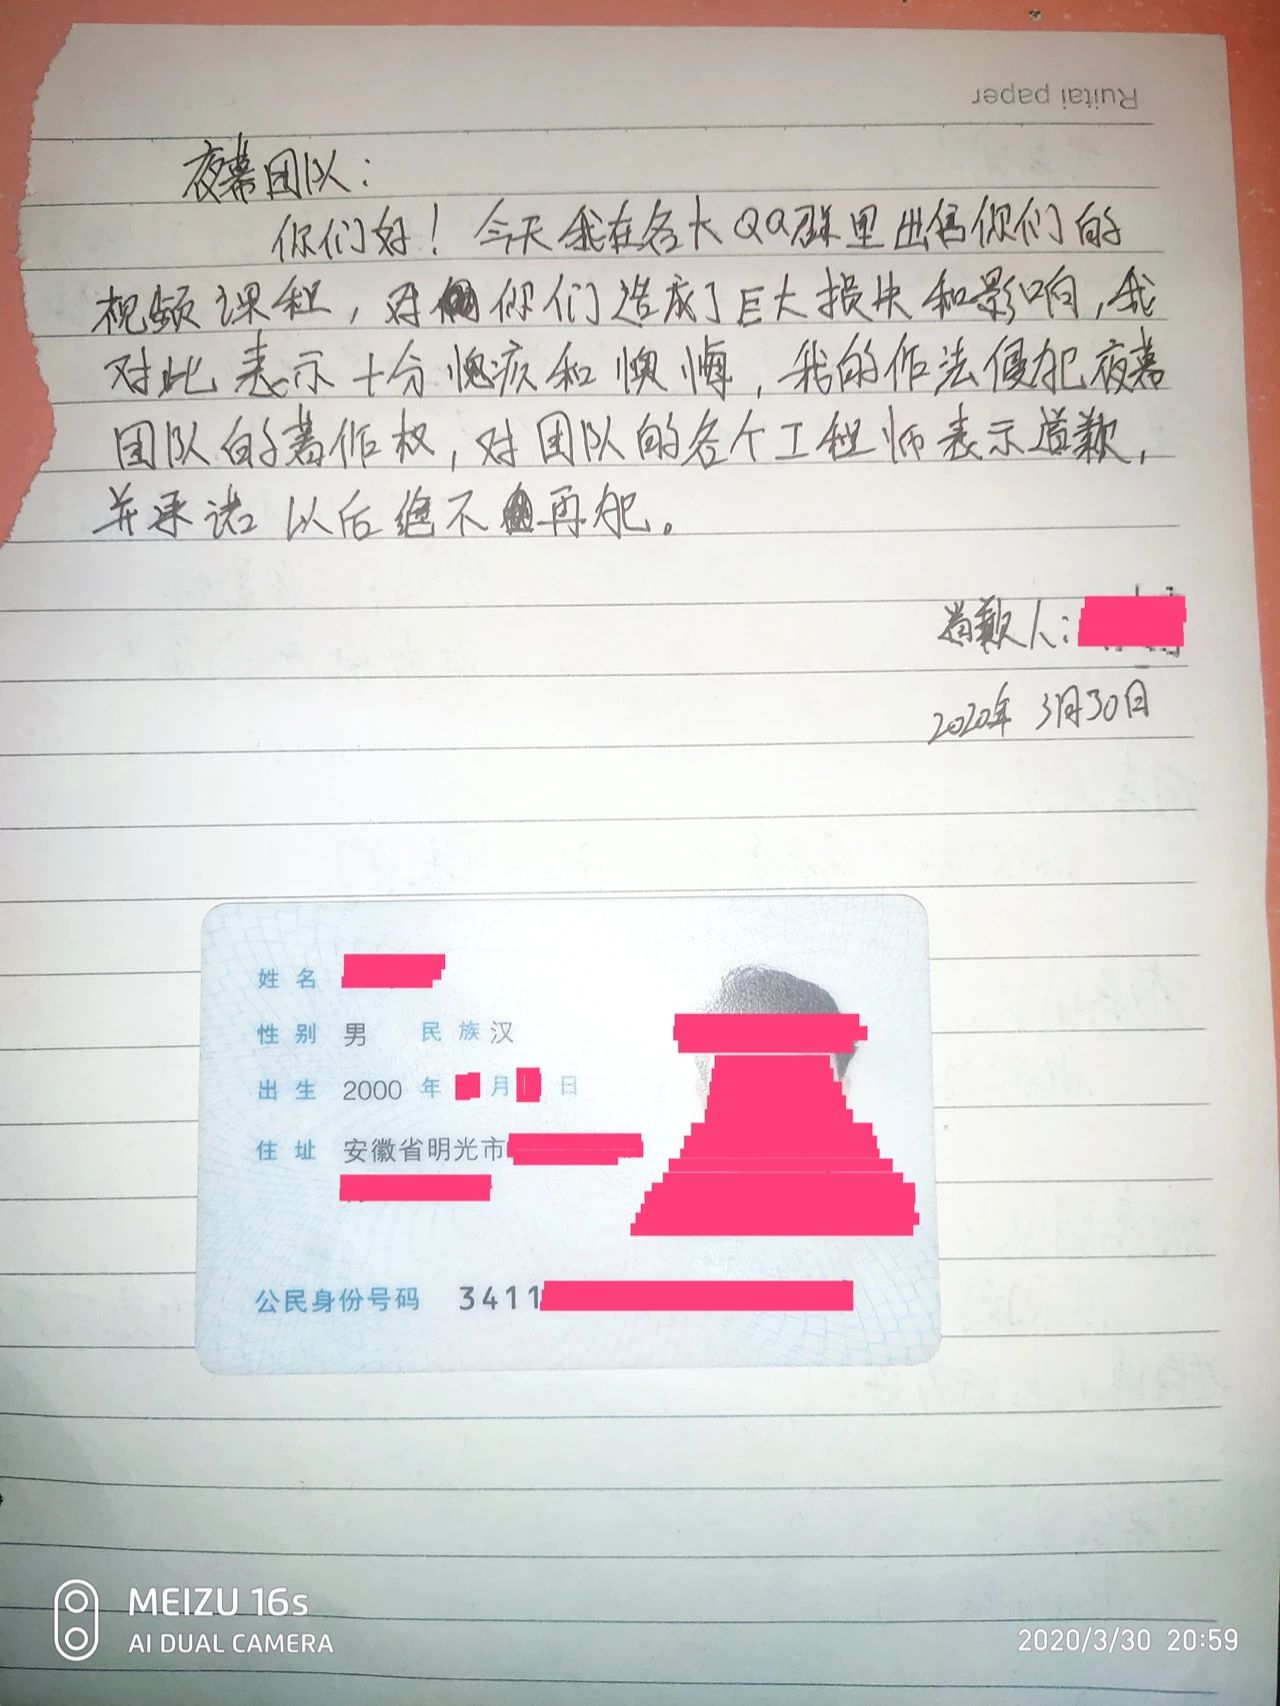 Ruitai paper
夜幕团队：
你们好！今天我在各大QQ群里出售你们的
视频课程，对你们造成了巨大损失和影响，我
对此表示十分愧疚和懊悔，我的作法侵犯夜幕
团队的著作权，对团队的各个工程师表示道歉，
并承诺以后绝不再犯。
道歉人：
2020年 3月30日
姓名
性别 男 民族 汉
出生 2000 年 月 日
住址 安徽省明光市
公民身份号码 3411
MEIZU 16s
AI DUAL CAMERA
2020/3/30 20:59